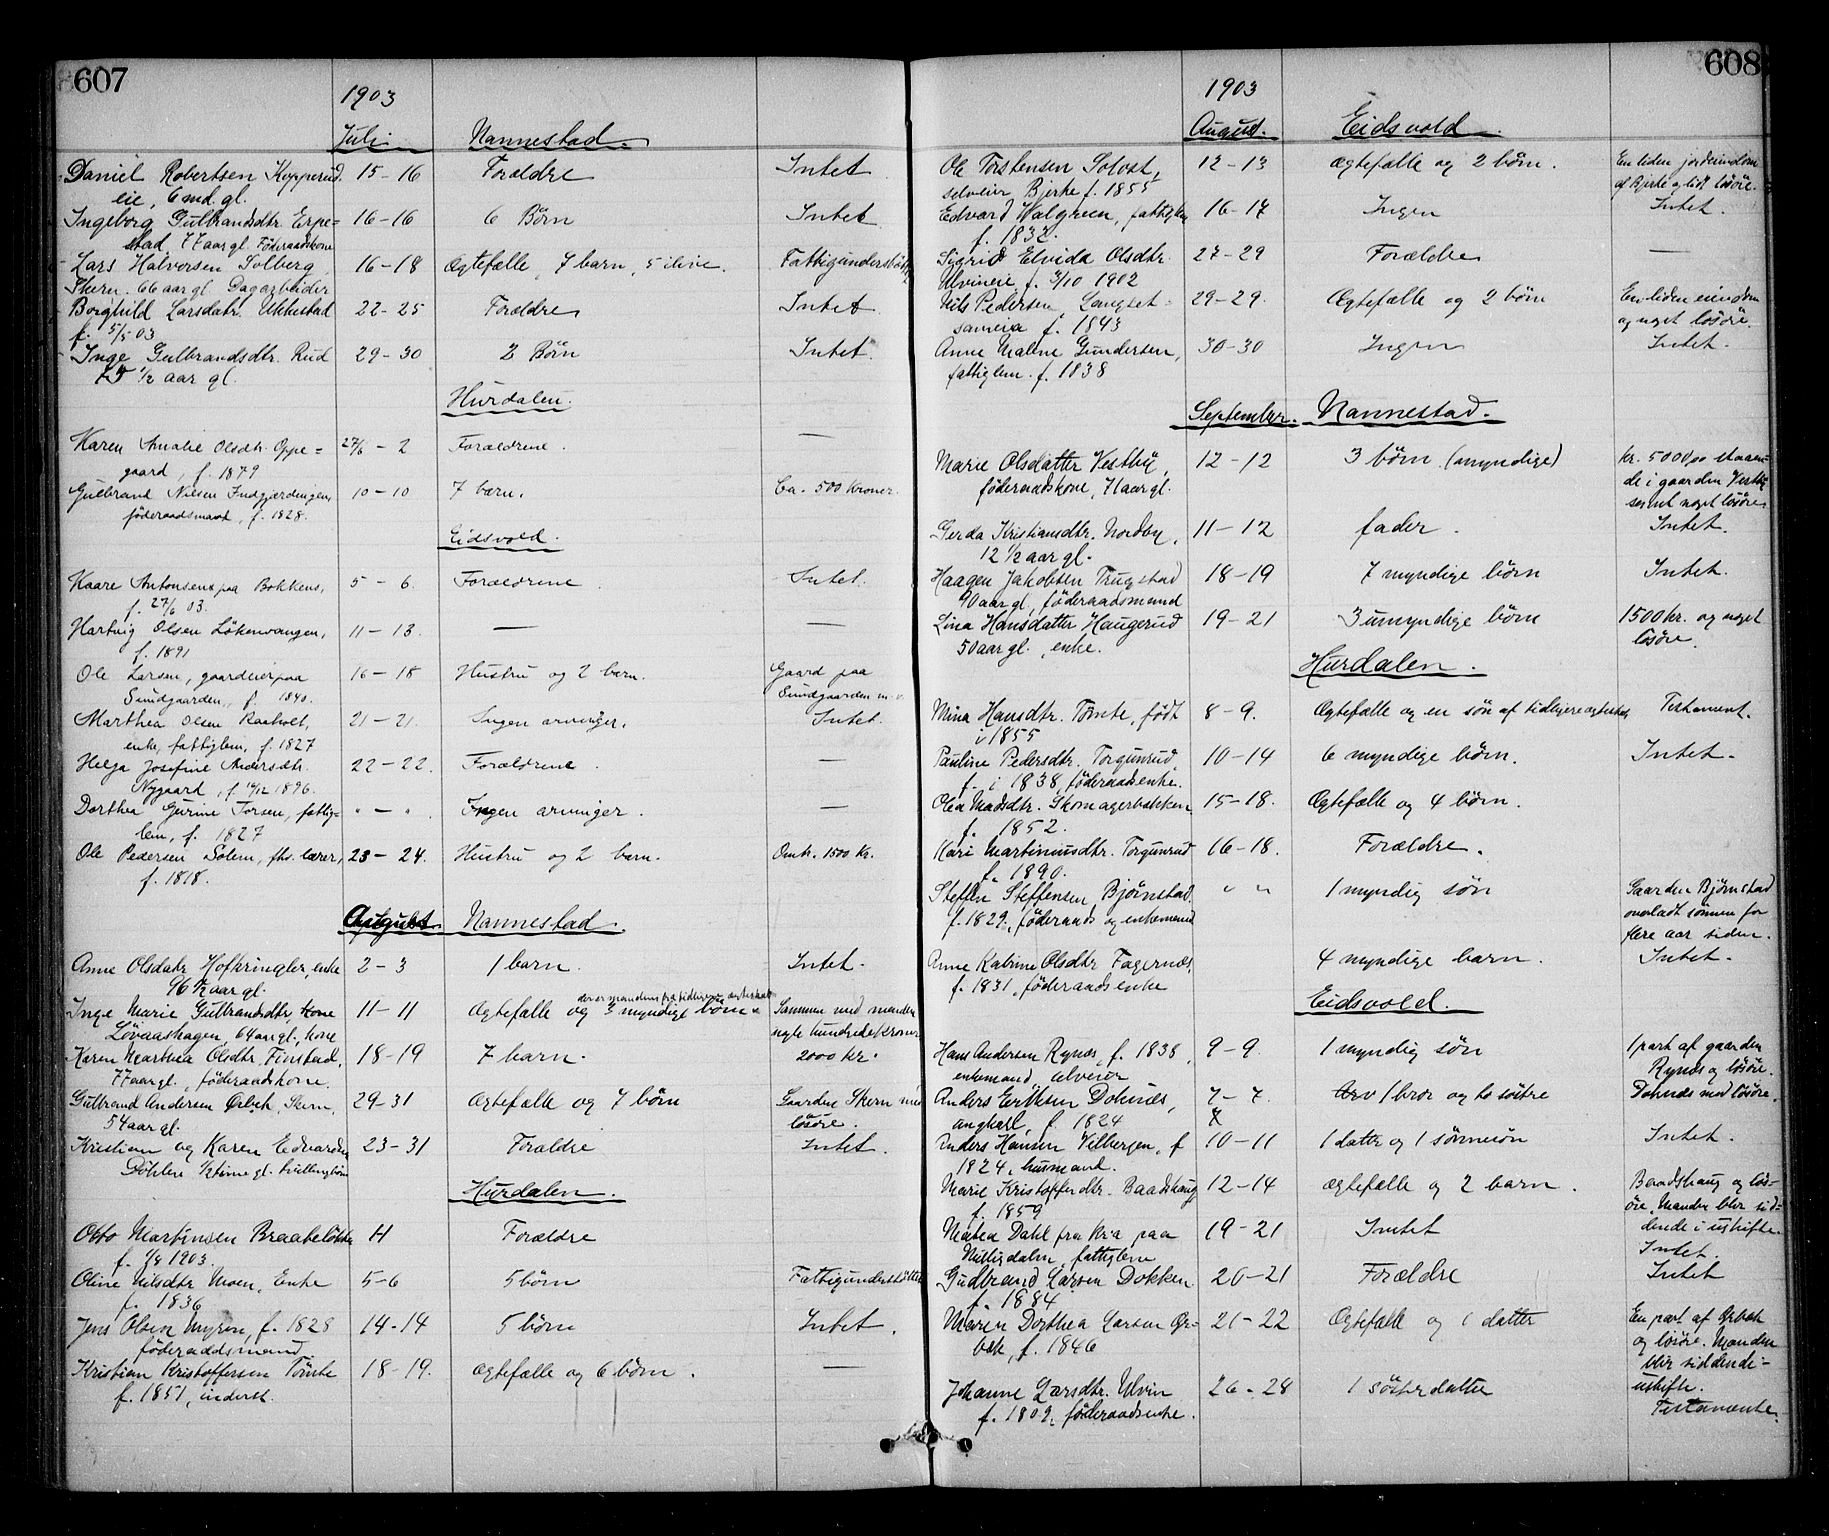 607
1903
Juli Nannestad
Daniel Robertsen Kopperud 15-16 Forældre Intet
eie, 6 md. gl.
Ingeborg Gulbrandsdtr. Erpe= 16-16 6 Børn Intet
stad, 77 aar gl. Føderaadskone
Lars Halvorsen Solberg 16-18 Ægtefælle, 7 barn, 5 ilive. Fattigunderstøtt.
Skern. 66 aar gl. Dagarbeider
Borghild Larsdatr. Ukkestad 22-25 Forældre Intet
f. 5/5 03
Inge Gulbrandsdtr. Rud 29-30 2 Børn Intet.
75 1/2 aar gl.
Hurdalen.
Karen Amalie Olsdtr. Oppe= 27/6 - 2 Forældrene. —
gaard, f. 1879
Gulbrand Nielsen Indgjærdingen, 10-10 7 barn. Ca. 500 Kroner.
föderaadsmand, f. 1828.
Eidsvold.
Kaare Antonsen paa Bokken, 5 - 6. Forældrene. Intet.
f. 27/6 03.
Hartvig Olsen Løkenvangen, 11-13. — —
f. 1891
Ole Larsen, gaardeier paa 16-18 Hustru og 2 barn. Gaard paa
Sundgaarden, f. 1840. Sundgaarden m. v.
Marthea Olsen Raaholt, 21-21. Ingen arvinger. Intet.
enke, fattiglem, f. 1827
Helga Josefine Andersdtr. 22-22. Forældrene. —
Nygaard, f. 1896.
Dorthea Gurine Torsen, fattig= " - ". Ingen arvinger. —
lem, f. 1827
Ole Pedersen Solem, fhv. lærer, 23-24. Hustru og 2 barn. Omtr. 1500 Kr.
f. 1818.
August Nannestad.
Anne Olsdatr Hofkringler, enke 2-3 1 barn. Intet.
96 1/2 aar gl.
der er mandens fra tidligere ægteskab
Inge Marie Gulbrandsdtr, kone 11-11 Ægtefælle og 3 myndige børn Sammen med manden
Løvaashagen, 64 aar gl., kone nogle hundrede kroner
Karen Marthea Olsdtr. Finstad, 18-19 7 barn. 2000 kr.
77 aar gl., føderaadskone.
Gulbrand Andersen Ørbek, Skern, 29-31 Ægtefælle og 7 börn Gaarden Skern med
54 aar gl. lösöre.
Kristian og Karen Edvardsen 23-31 Forældre Intet.
Döhlen 1/2 time gl. tvillingbörn
Hurdalen.
Otto Martinsen Braateløkken 4 Forældre
f. 1903.
Oline Nilsdtr. Moen, Enke 5-6 5 børn Fattigunderstøttet
f. 1836
Jens Olsen Myren, f. 1828 14-14 5 børn Intet.
föderaadsmand.
Kristian Kristoffersen Tömte 18-19. Ægtefælle og 6 børn. —
f. 1851, inderst.
608
1903
August. Eidsvold.
Ole Torstensen Solvst, 12-13 Ægtefælle og 2 børn. En liden jordeiendom
selveier, Bjerke f. 1855 af Bjerke og lidt løsøre.
Edvard Walgreen, fattiglem 16-17 Ingen Intet.
f. 1832.
Sigrid Elvida Olsdtr. 27-29 Forældre —
Ulvineie, f. 3/10 1902
Nils Pedersen, Langset- 29-29. Ægtefælle og 2 børn En liden eiendom
sameia f. 1843 og noget løsøre.
Anne Malene Gundersen, 30-30 Ingen Intet.
fattiglem. f. 1838
September. Nannestad.
Marie Olsdatter Vestby, 12-12 3 børn. (myndige) kr. 5000,00 staaen-
föderaadskone, 71 aar gl. de i gaarden Vestby
samt noget lösöre
Gerda Kristiansdtr. Nordby, 11-12 fader. Intet.
12 1/2 aar gl.
Haagen Jakobsen Trugstad 18-19 7 myndige børn Intet.
90 aar gl, föderaadsmand
Lina Hansdatter Haugerud 19-21 3 umyndige børn 1500 kr. og noget
50 aar gl., enke. løsöre.
Hurdalen.
Mina Hansdtr. Tømte, født 8-9. Ægtefælle og en søn af tidligere ægteskab Testament.
i 1855
Pauline Pedersdtr. Torgunrud, 10-14 6 myndige børn. Intet.
f. i 1838, föderaadsenke.
Olea Madsdtr. Skomagerbakken 15-18. Ægtefælle og 4 börn.
f. 1852.
Kari Martiniusdtr. Torgunrud 16-18. Forældre.
f. 1890.
Steffen Steffensen Bjørnstad. " " 1 myndig søn Gaarden Bjørnstad
f. 1829, föderaads og enkemand overladt sønnen for
flere aar siden.
Anne Katrine Olsdtr Fagernæs, 4 myndige barn. Intet.
f. 1831, föderaadsenke
Eidsvold.
Hans Andersen Rynæs, f. 1838, 9-9. 1 myndig søn 1 part af gaarden
enkemand, selveier Rynæs og løsøre.
Anders Eriksen Dohnæs, 7-7. Arv 1 bror og to søstre Dohnæs med løsøre.
ungkarl, f. 1824
Anders Hansen Vilbergen, f 10-11 1 datter og 1 sønnesøn Intet.
1824, husmand.
Marie Kristoffersdtr. Baadshaug 12-14 ægtefælle og 2 barn. Baadshaug og løs-
f. 1859 øre. Manden blir sid-
dende i uskifte.
Matea Dahl fra Kra paa 19-21 Intet Intet.
Nittedalen, fattiglem
Gudbrand Larsen Dokken 20-21 Forældre Intet
f. 1884
Maren Dorthea Larsen Ør- 21-22 Ægtefælle og 1 datter En part af Ørbæk
bæk, f. 1846 og løsøre. Manden
blir siddende i
uskifte.
Johanne Larsdtr. Ulvin 26-28 1 søsterdatter Testamente.
f. 1809, föderaadsenke.